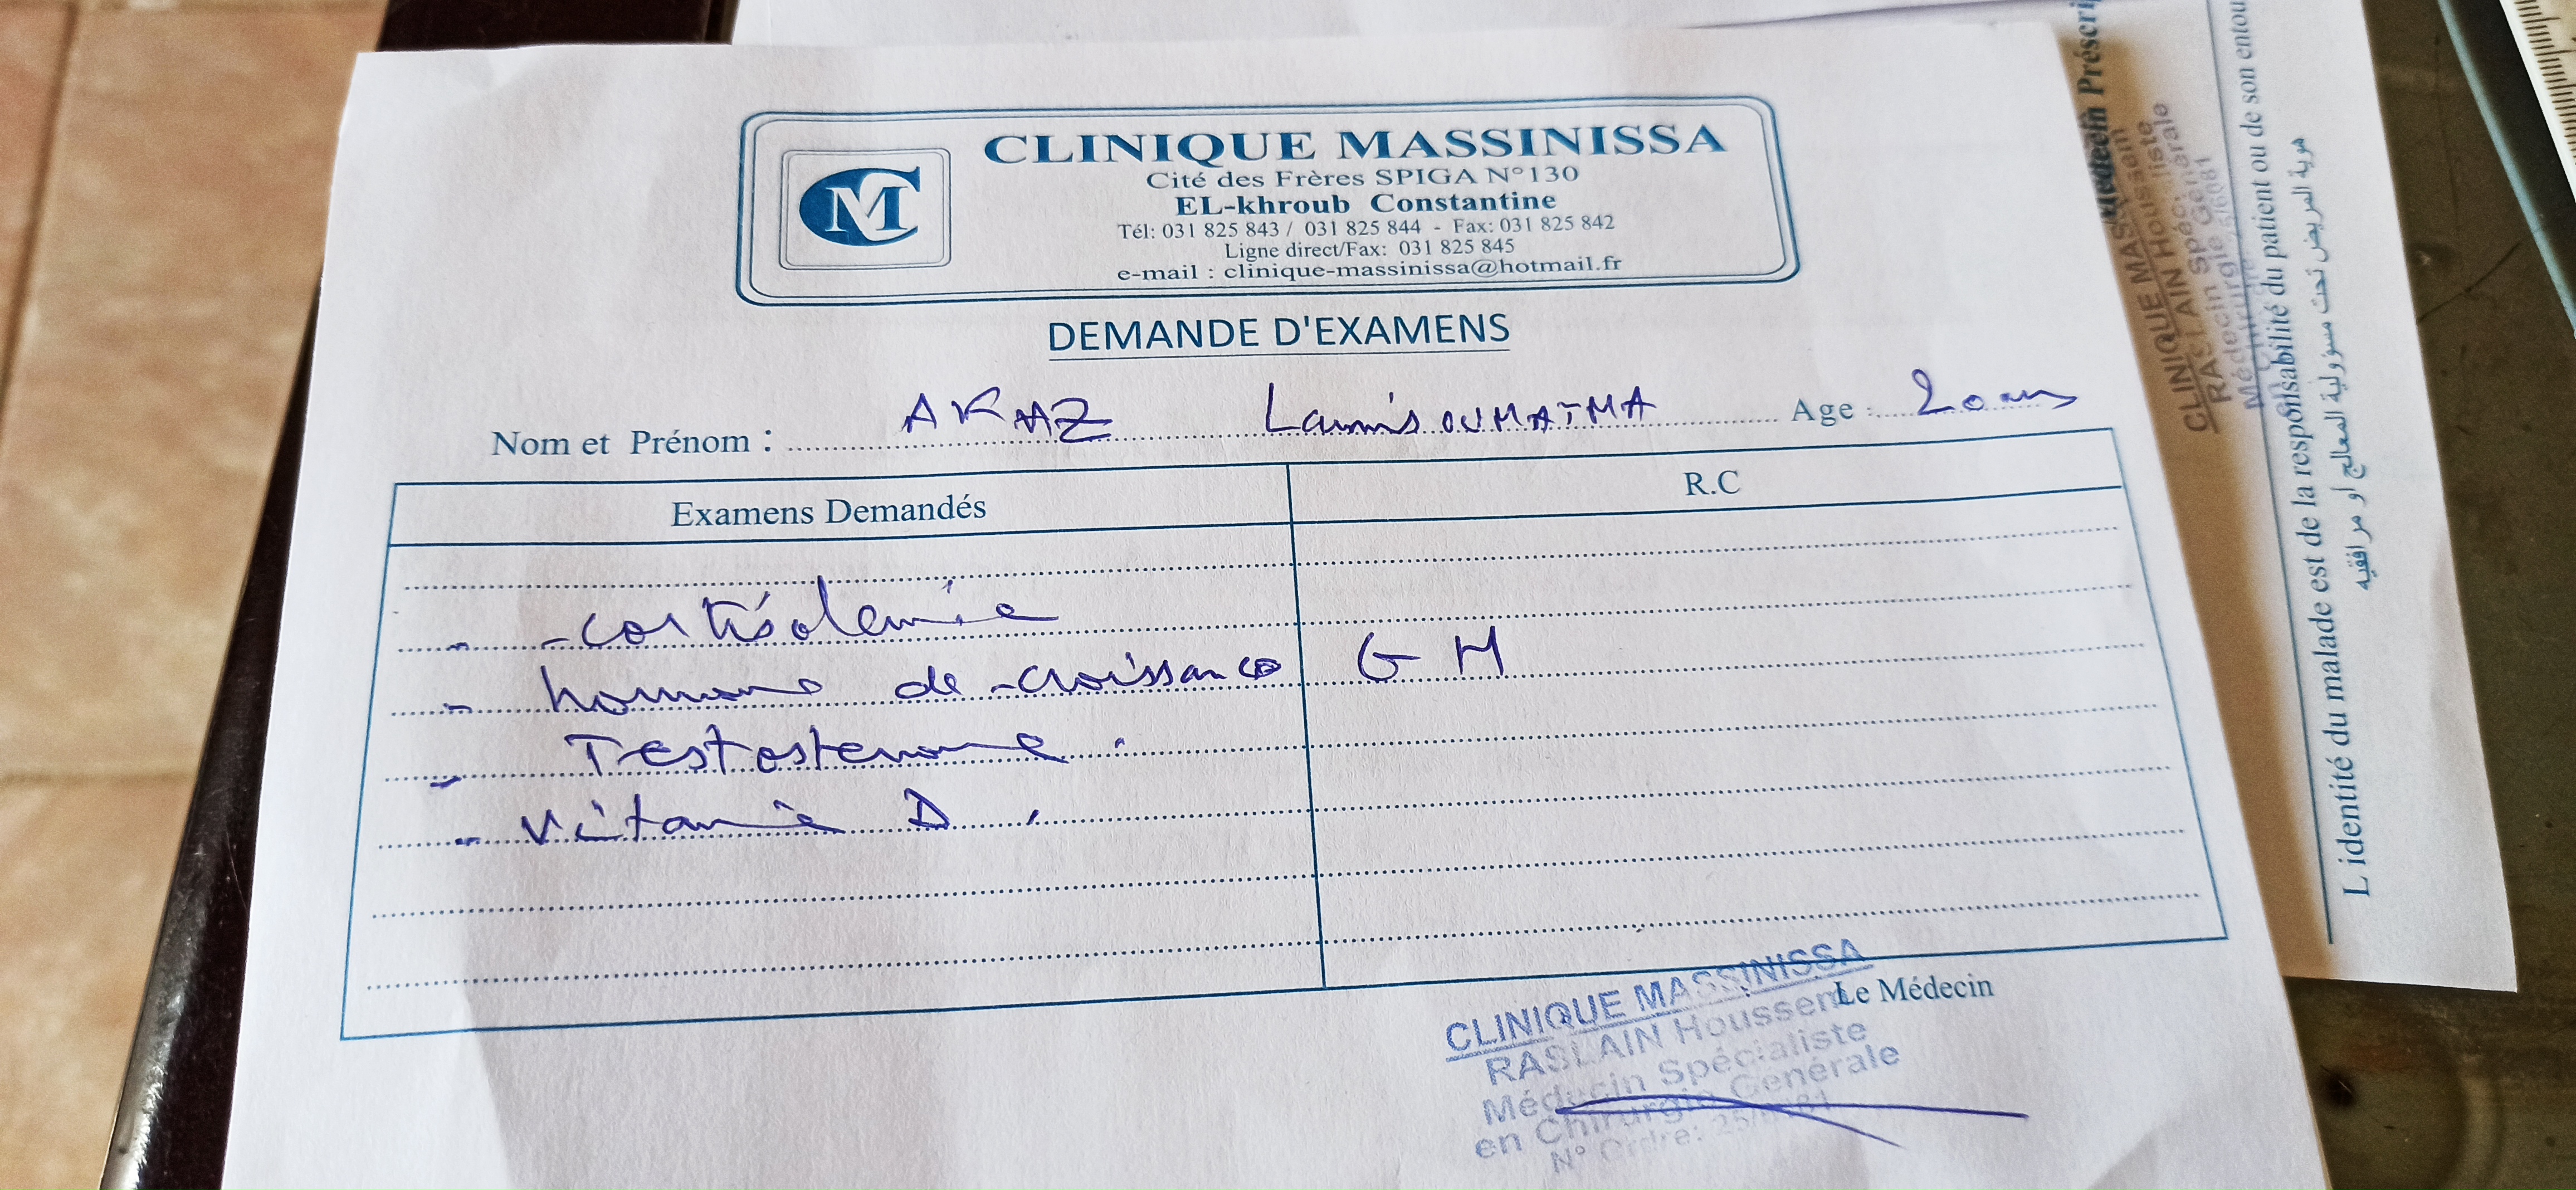 CLINIQUE MASSINISSA
CM
Cité des Frères SPIGA N°130
EL-khroub Constantine
Tél: 031 825 843 / 031 825 844 - Fax: 031 825 842
Ligne direct/Fax: 031 825 845
e-mail : clinique-massinissa@hotmail.fr
DEMANDE D'EXAMENS
Nom et Prénom : AKAZ Lamis OUMAIMA Age : 20 ans
Examens Demandés
R.C
- cortisolemie
- hormone de croissance GH
- Testosterone.
- Vitamie D.
Le Médecin
CLINIQUE MASSINISSA
RASLAIN Houssem
Médecin Spécialiste
en Chirurgie Générale
N° Ordre:
Médecin Prescri
CLINIQUE MASSINISSA
RASLAIN Houssem
L identité du malade est de la responsabilité du patient ou de son entou
هوية المريض تحت مسؤولية المعالج أو مرافقيه